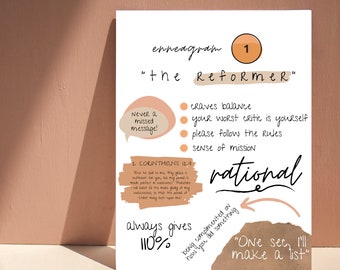 enneagram 1
"the REFORMER"
craves balance
your worst critic is yourself
please follow the rules
sense of mission
never a
missed
message!
2 CORINTHIANS 12:9
rational
always gives
110%
being complimented on
how you did something
"One sec, I'll
make a list"